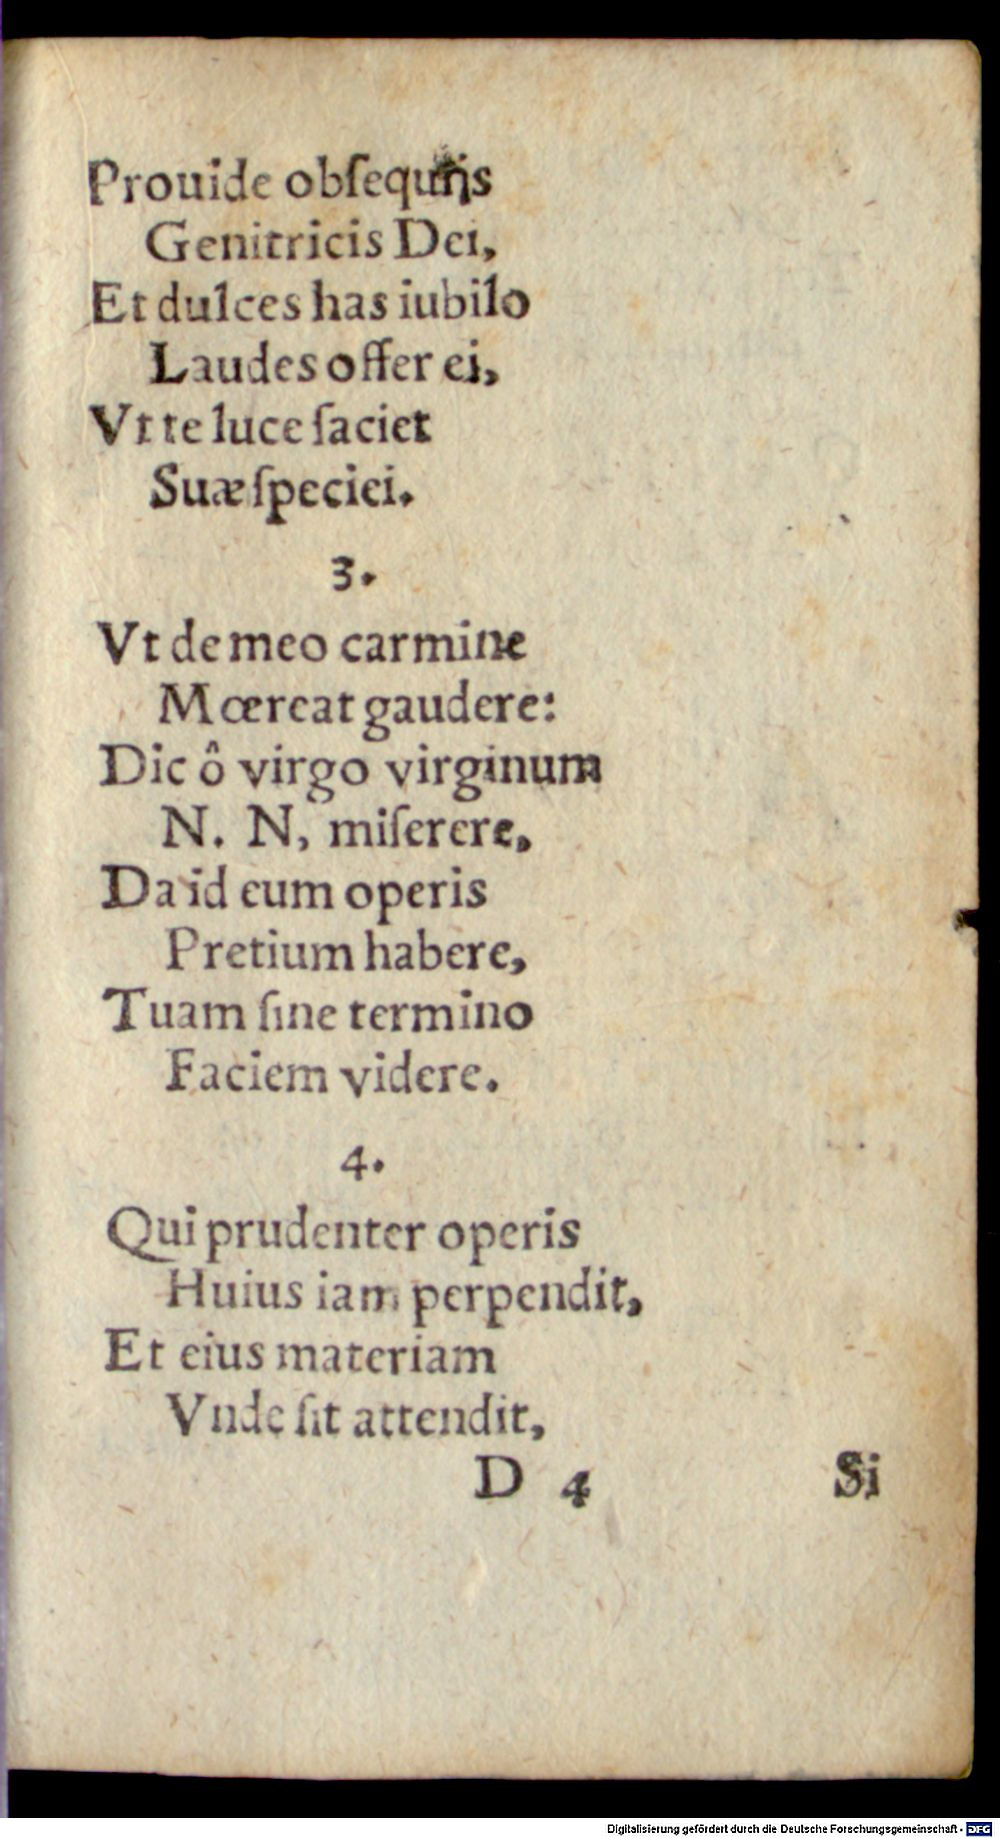 Prouide obſequijs
Genitricis Dei,
Et dulces has iubilo
Laudes offer ei,
Vt te luce ſaciet
Suæ ſpeciei.
3.
Vt de meo carmine
Mœreat gaudere:
Dic ô virgo virginum
N. N, miſerere,
Da id eum operis
Pretium habere,
Tuam ſine termino
Faciem videre.
4.
Qui prudenter operis
Huius iam perpendit,
Et eius materiam
Vnde ſit attendit,
D 4 Si
Digitalisierung gefördert durch die Deutsche Forschungsgemeinschaft - DFG